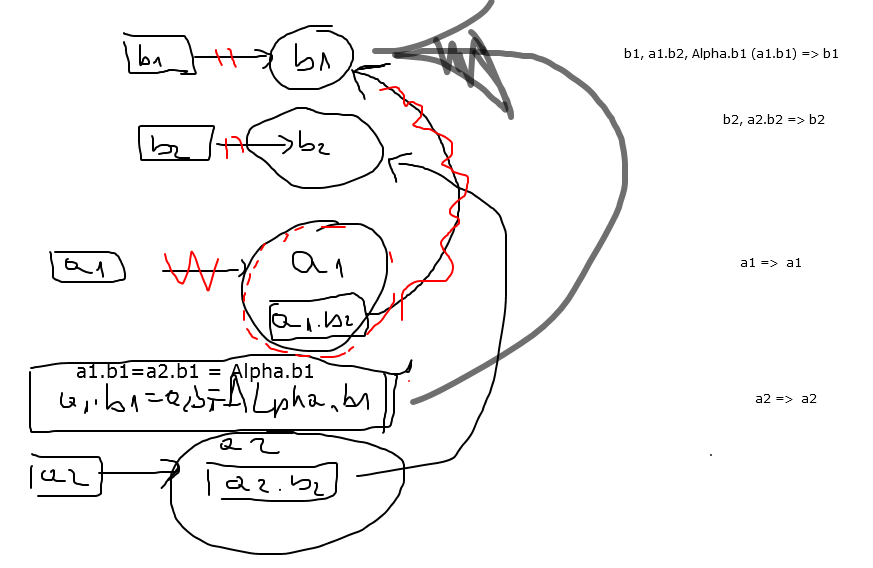 b1 b1 b1, a1.b2, Alpha.b1 (a1.b1) => b1
b2 b2 b2, a2.b2 => b2
a1 a1 a1 => a1
a1.b2
a1.b1=a2.b1 = Alpha.b1
Alpha.b1 a2 => a2
a2
a2 a2.b2